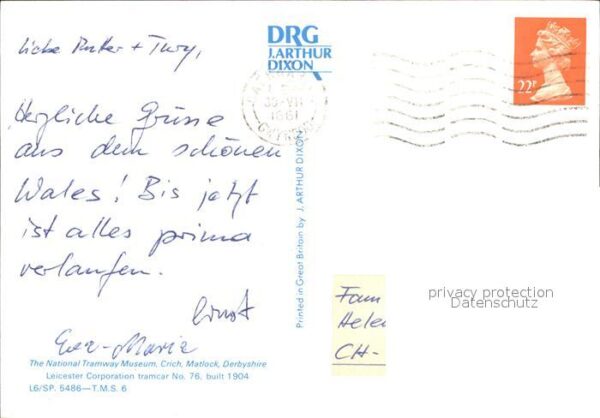 DRG
J. ARTHUR
DIXON
22P
Herzliche Grüsse
aus dem schönen
Wales! Bis jetzt
ist alles prima
verlaufen.
Ernst
Eva-Maria
The National Tramway Museum, Crich, Matlock, Derbyshire
Leicester Corporation tramcar No. 76, built 1904
L6/SP. 5486—T.M.S. 6
Printed in Great Britain by J. ARTHUR DIXON
Fam
Helen
CH-
privacy protection
Datenschutz